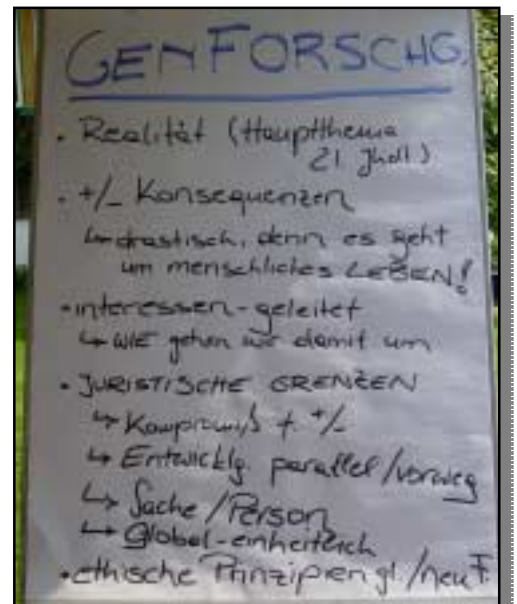 GENFORSCHG.
• Realität (Hauptthema
21 Jhdt)
• +/- Konsequenzen
↳ drastisch, denn es geht
um menschliches LEBEN!
• interessen-geleitet
↳ WIE gehen wir damit um
• JURISTISCHE GRENZEN
↳ Kompromiß f. +/-
↳ Entwicklg. parallel/vorweg
↳ Sache/Person
↳ Global-einheitlich
• ethische Prinzipien /neu